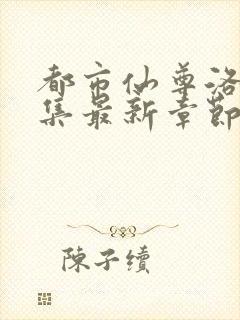 都市仙尊洛
集最新章節
陳子續